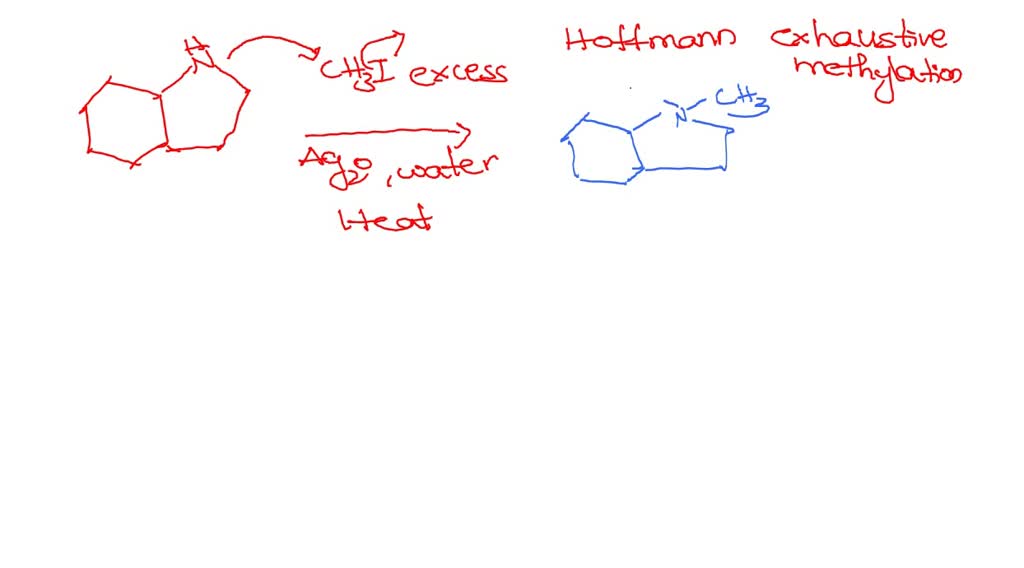 H
N
CH3I excess
Ag2O, water
Heat
Hoffmann exhaustive
methylation
N-CH3